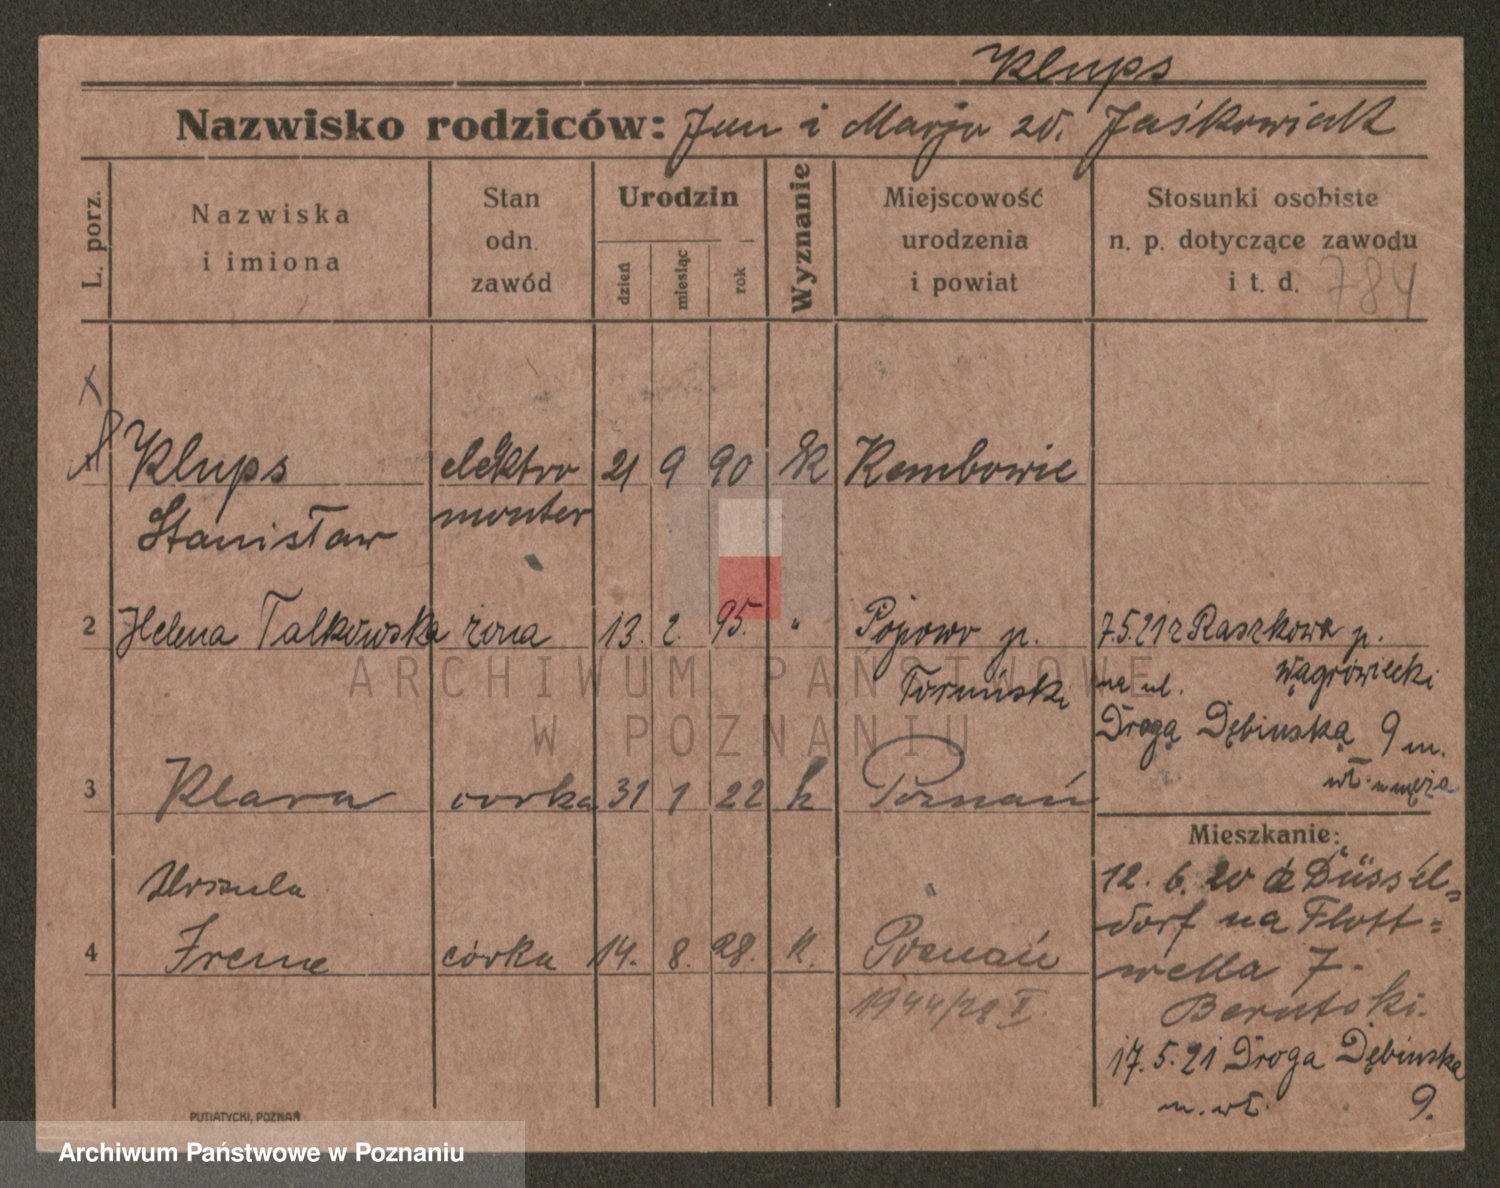 Klups
Nazwisko rodziców: Jan i Marja zd. Jaśkowiak
L. porz.
Nazwiska
i imiona
Stan
odn.
zawód
Urodzin
dzień
miesiąc
rok
Wyznanie
Miejscowość
urodzenia
i powiat
Stosunki osobiste
n. p. dotyczące zawodu
i t. d.
784
Klups elektro 21 9 90 rk Kembowie
Stanisław monter
2 Helena Talkowska żona 13. 2. 95. " Popowo p. 7.5.21 z Raszkowa p.
Toruński na ul. Wągrowiecki
Drogą Dębińską 9 m.
wł. u męża
3 Klara córka 31 1 22 k Poznań
Mieszkanie:
Urszula 12. 6. 20 z Düssel=
dorf na Flott=
4 Irena córka 14. 8. 28. k. Poznań
wella 7.
1944/28 II. Berutski.
17.5.21 Droga Dębinska
m. wł. 9.
PUTIATYCKI, POZNAŃ
ARCHIWUM PAŃSTWOWE
W POZNANIU
Archiwum Państwowe w Poznaniu